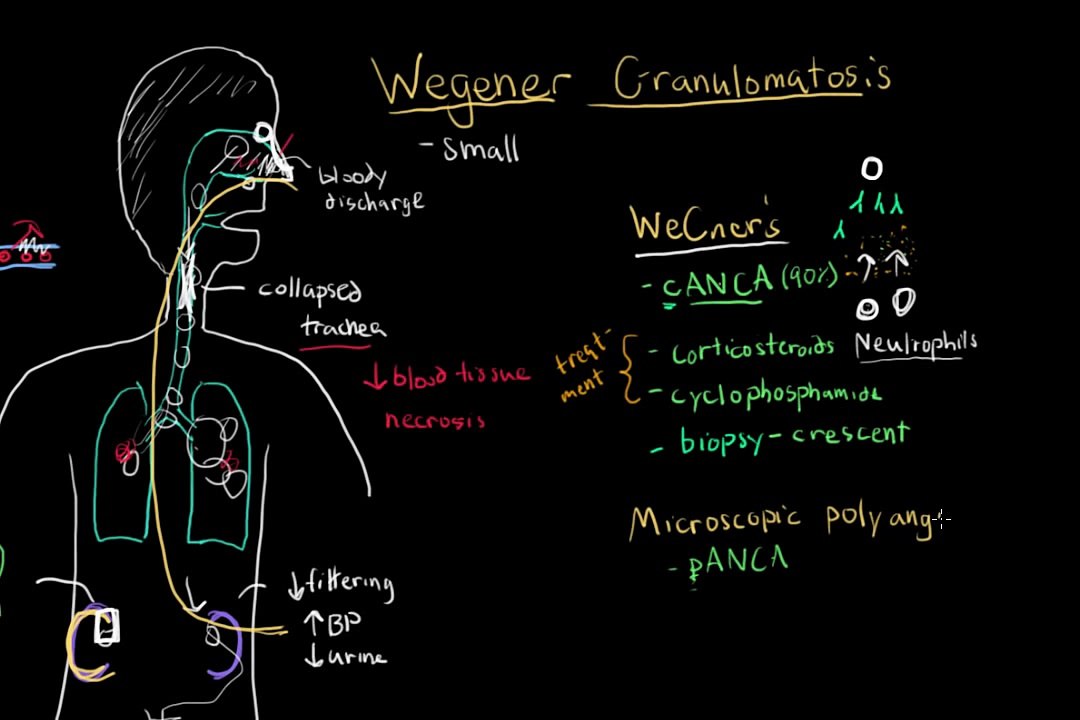 Wegener Granulomatosis
- small
bloody
discharge
collapsed
trachea
↓ blood tissue
necrosis
↓ filtering
↑ BP
↓ urine
WeCner's
- cANCA (90%)
treat-
ment
- corticosteroids
- cyclophosphamide
- biopsy - crescent
Neutrophils
Microscopic polyang
- pANCA